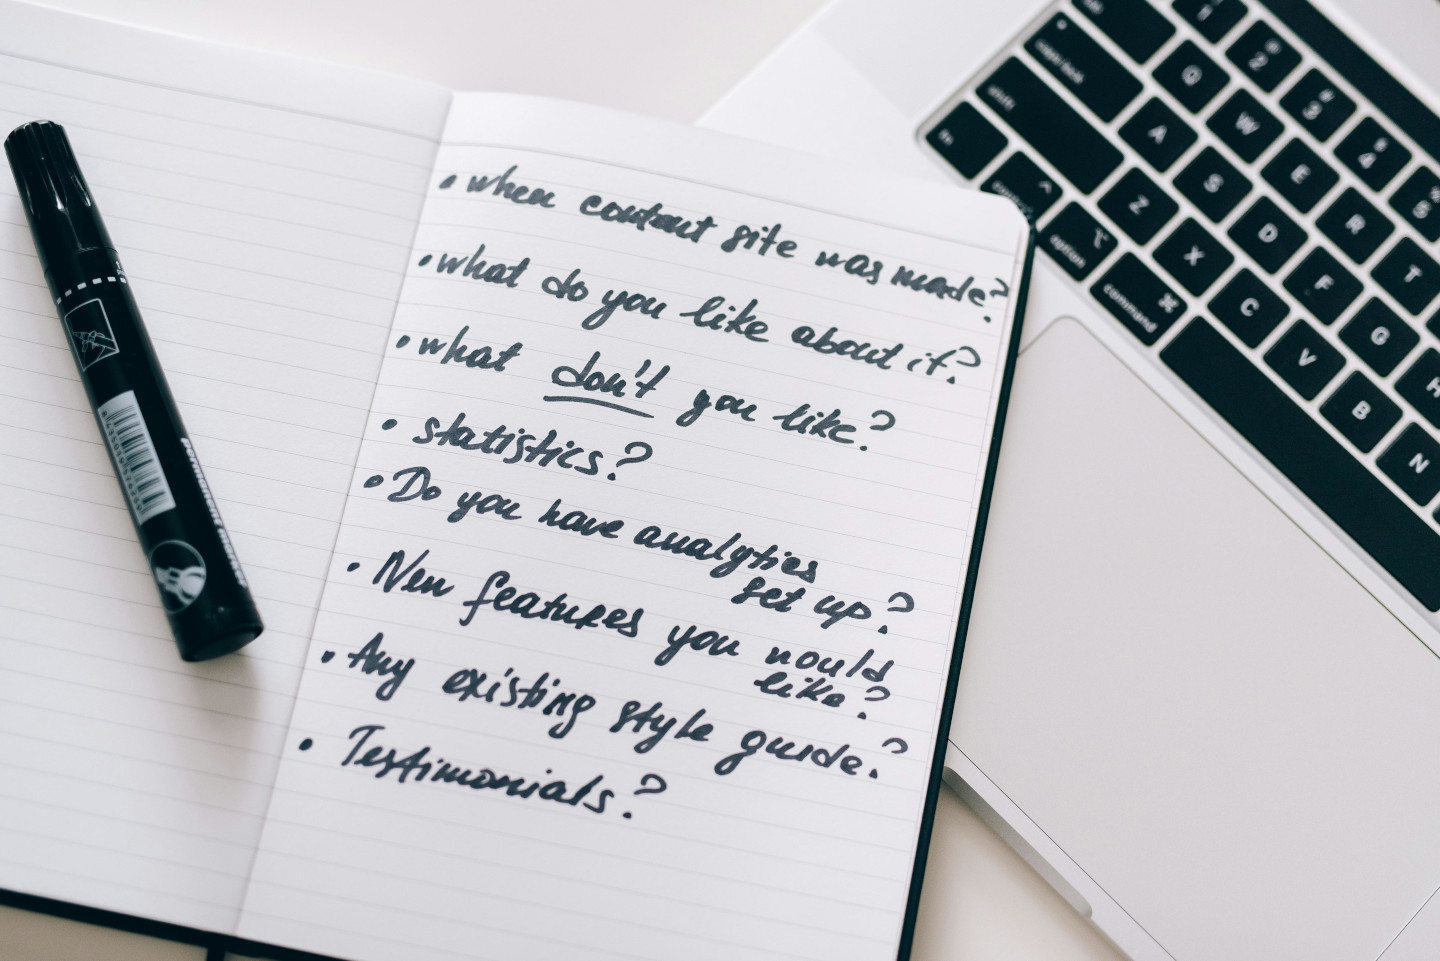 • when content site was made?
• what do you like about it?
• what don't you like?
• statistics?
• Do you have analytics
set up?
• New features you would
like?
• Any existing style guide?
• Testimonials?
permanent marker
1
2
3
4
5
Q
W
E
R
T
caps lock
A
S
D
F
G
H
shift
Z
X
C
V
B
N
fn
control
option
command